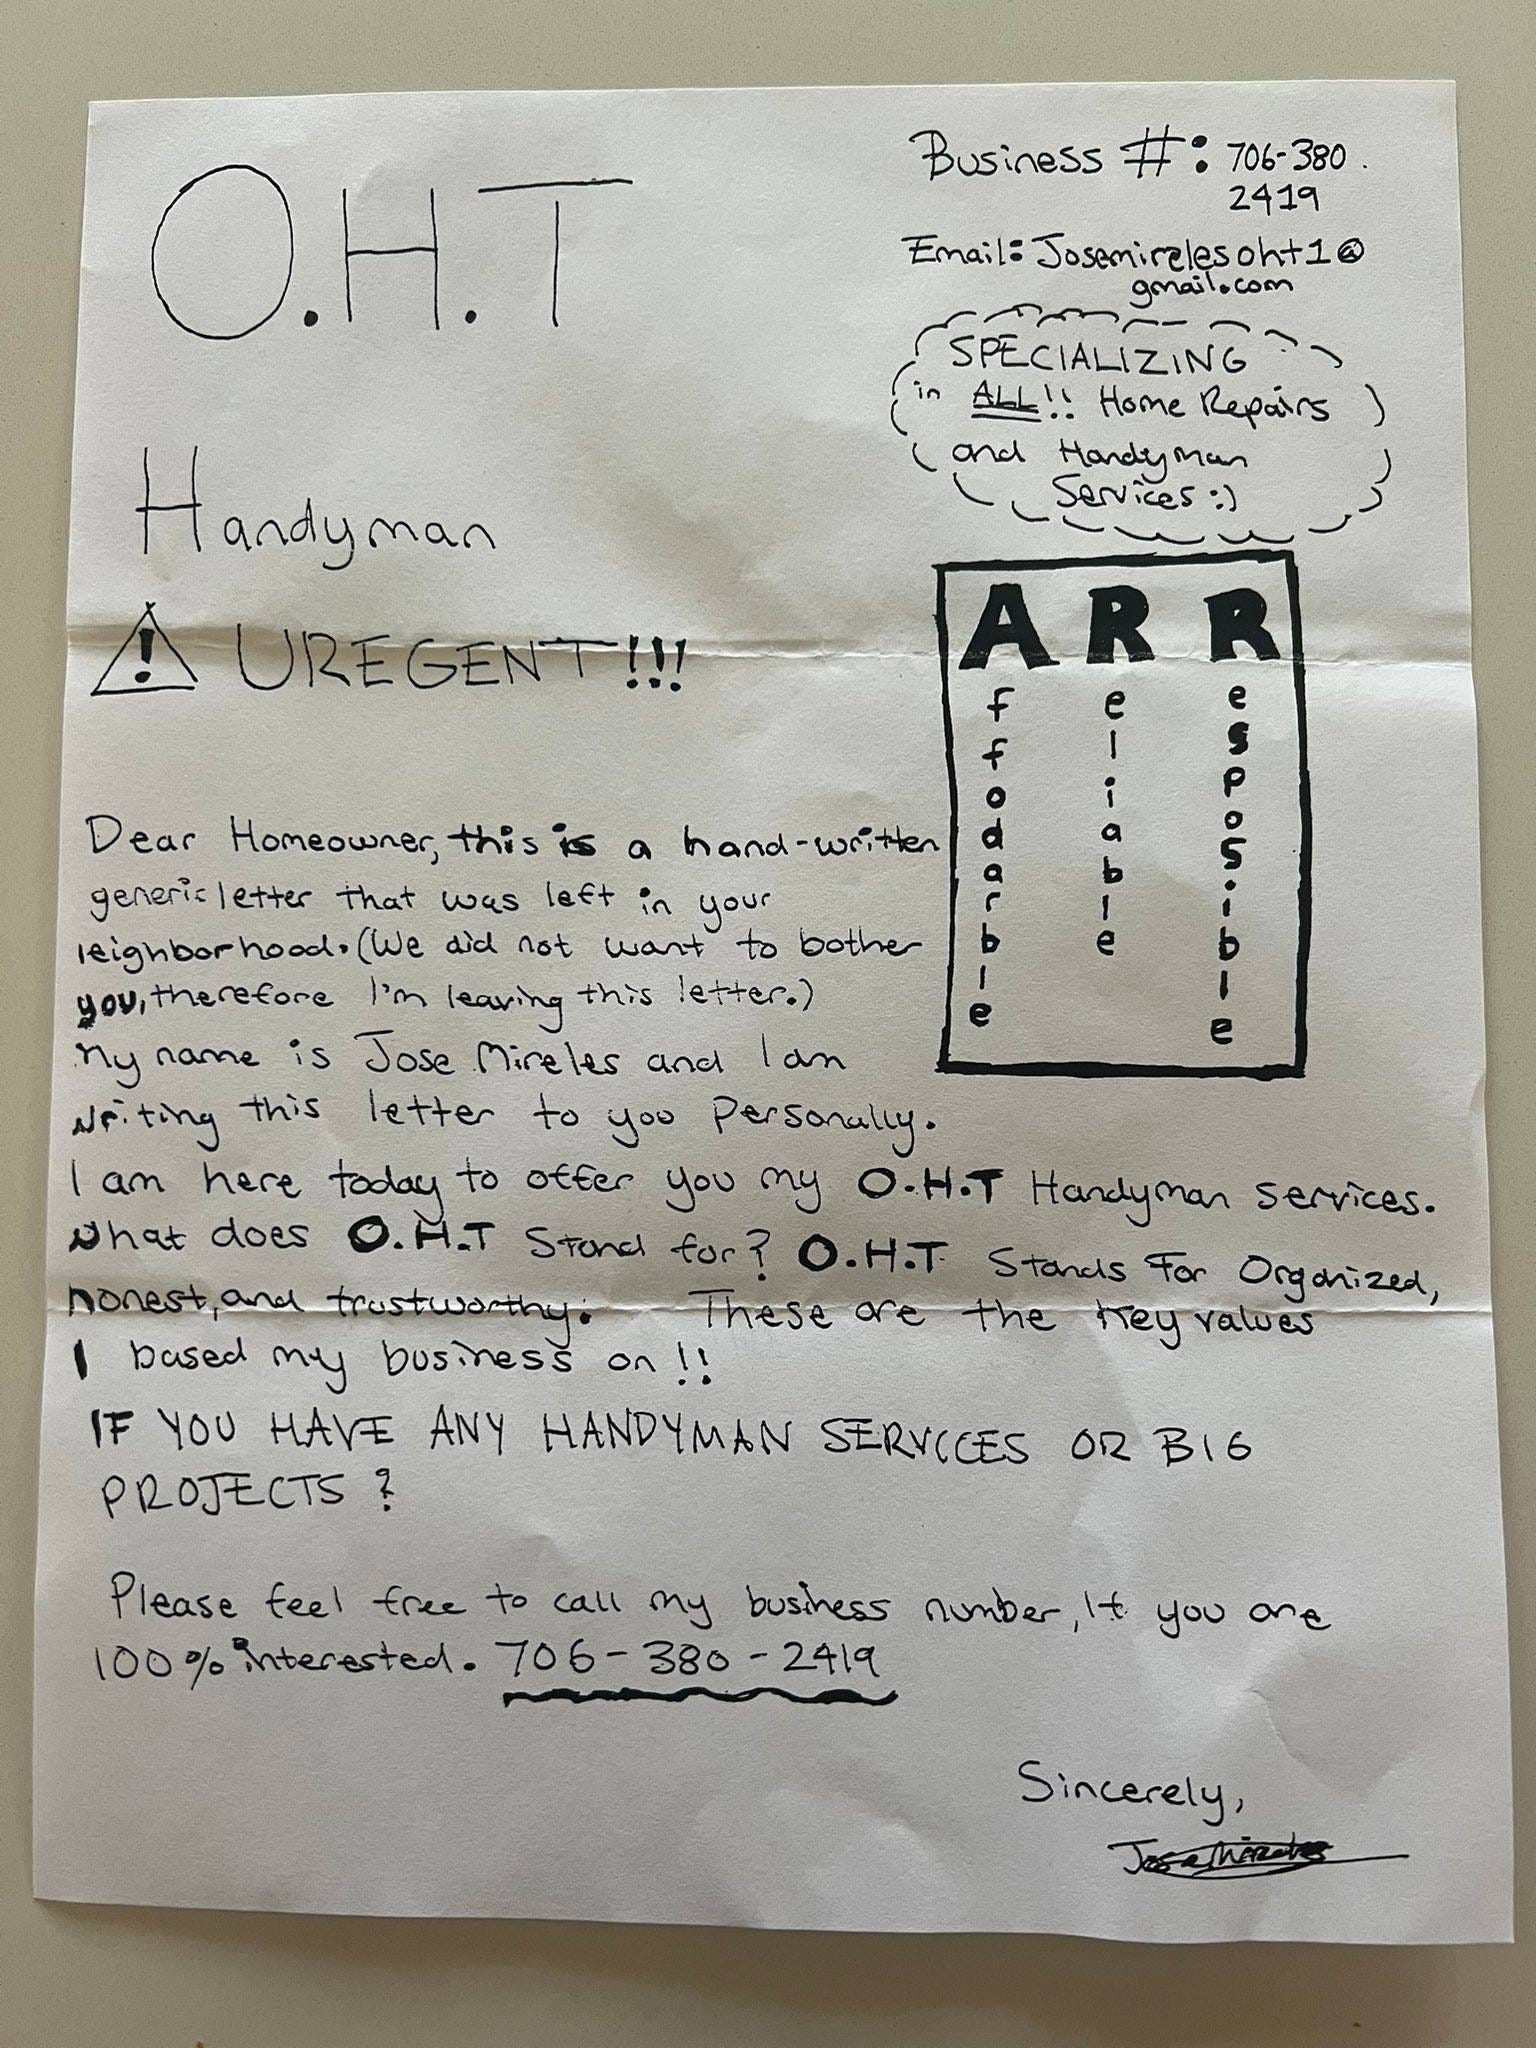 O.H.T
Handyman
Business #: 706-380
2419
Email: Josemirelesoht1@
gmail.com
SPECIALIZING
in ALL!! Home Repairs
and Handyman
Services :)
! UREGENT!!!
A R R
Affodarble
Reliable
Resposible
Dear Homeowner, this is a hand-written
generic letter that was left in your
neighborhood. (We did not want to bother
you, therefore I'm leaving this letter.)
My name is Jose Mireles and I am
writing this letter to you Personally.
I am here today to offer you my O.H.T Handyman services.
What does O.H.T Stand for? O.H.T Stands For Organized,
honest, and trustworthy. These are the Key values
I based my business on!!
IF YOU HAVE ANY HANDYMAN SERVICES OR BIG
PROJECTS?
Please feel free to call my business number, If you are
100% interested. 706-380-2419
Sincerely,
Jose Mireles